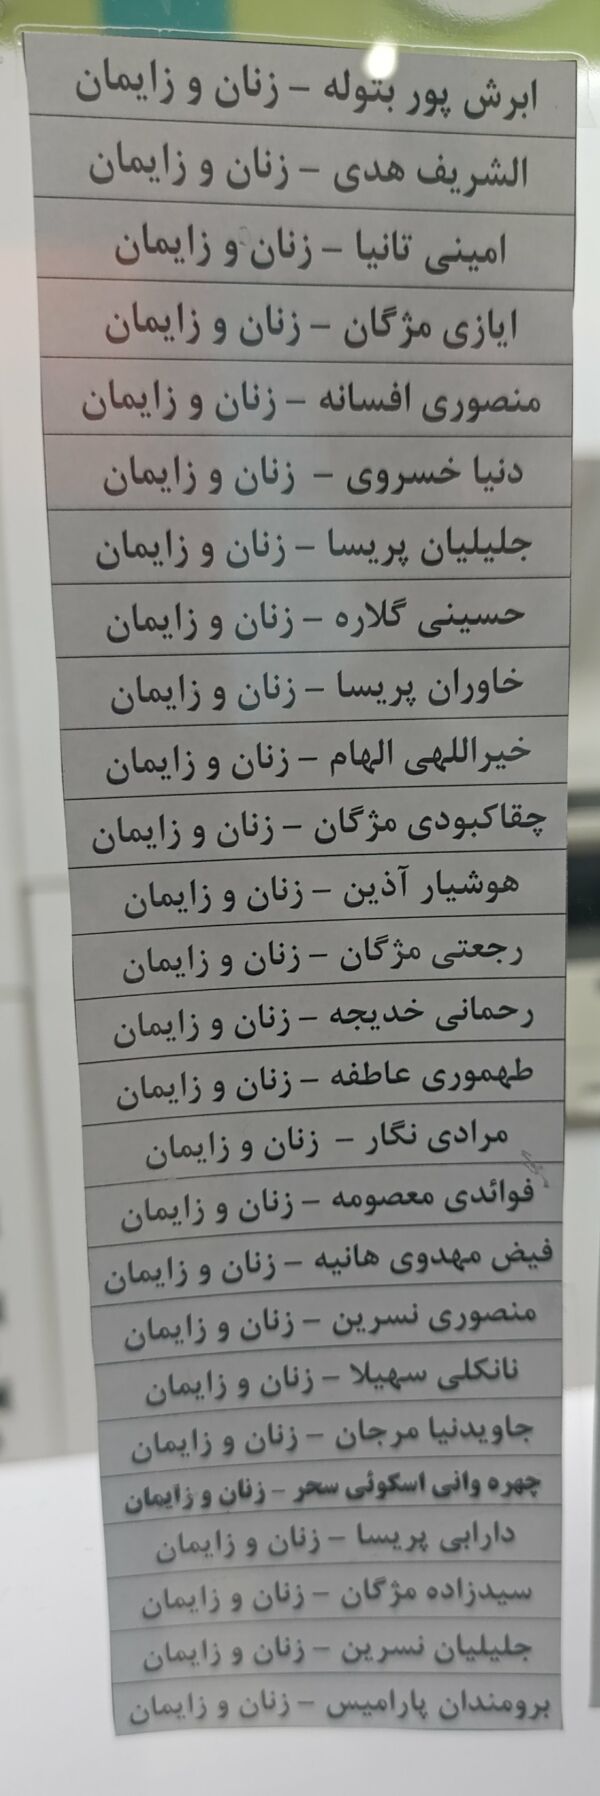 ابرش پور بتوله – زنان و زایمان
الشریف هدی – زنان و زایمان
امینی تانیا – زنان و زایمان
ایازی مژگان – زنان و زایمان
منصوری افسانه – زنان و زایمان
دنیا خسروی – زنان و زایمان
جلیلیان پریسا – زنان و زایمان
حسینی گلاره – زنان و زایمان
خاوران پریسا – زنان و زایمان
خیراللهی الهام – زنان و زایمان
چقاکبودی مژگان – زنان و زایمان
هوشیار آذین – زنان و زایمان
رجعتی مژگان – زنان و زایمان
رحمانی خدیجه – زنان و زایمان
طهموری عاطفه – زنان و زایمان
مرادی نگار – زنان و زایمان
فوائدی معصومه – زنان و زایمان
فیض مهدوی هانیه – زنان و زایمان
منصوری نسرین – زنان و زایمان
نانکلی سهیلا – زنان و زایمان
جاویدنیا مرجان – زنان و زایمان
چهره وانی اسکوئی سحر – زنان و زایمان
دارابی پریسا – زنان و زایمان
سیدزاده مژگان – زنان و زایمان
جلیلیان نسرین – زنان و زایمان
برومندان پارامیس – زنان و زایمان